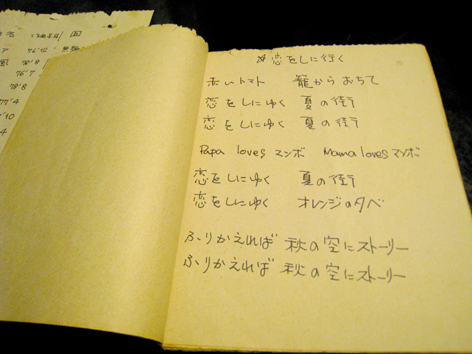 恋をしに行く
赤いトマト 籠から おちて
恋をしにゆく 夏の街う
恋をしにゆく 夏の街う
Papa loves マンボ Mama loves マンボ
恋をしにゆく 夏の街う
恋をしにゆく オレンジの夕べ
ふりかえれば 秋の空にストーリー
ふりかえれば 秋の空にストーリー
76'12
76'7
78'8
78'8
77'4